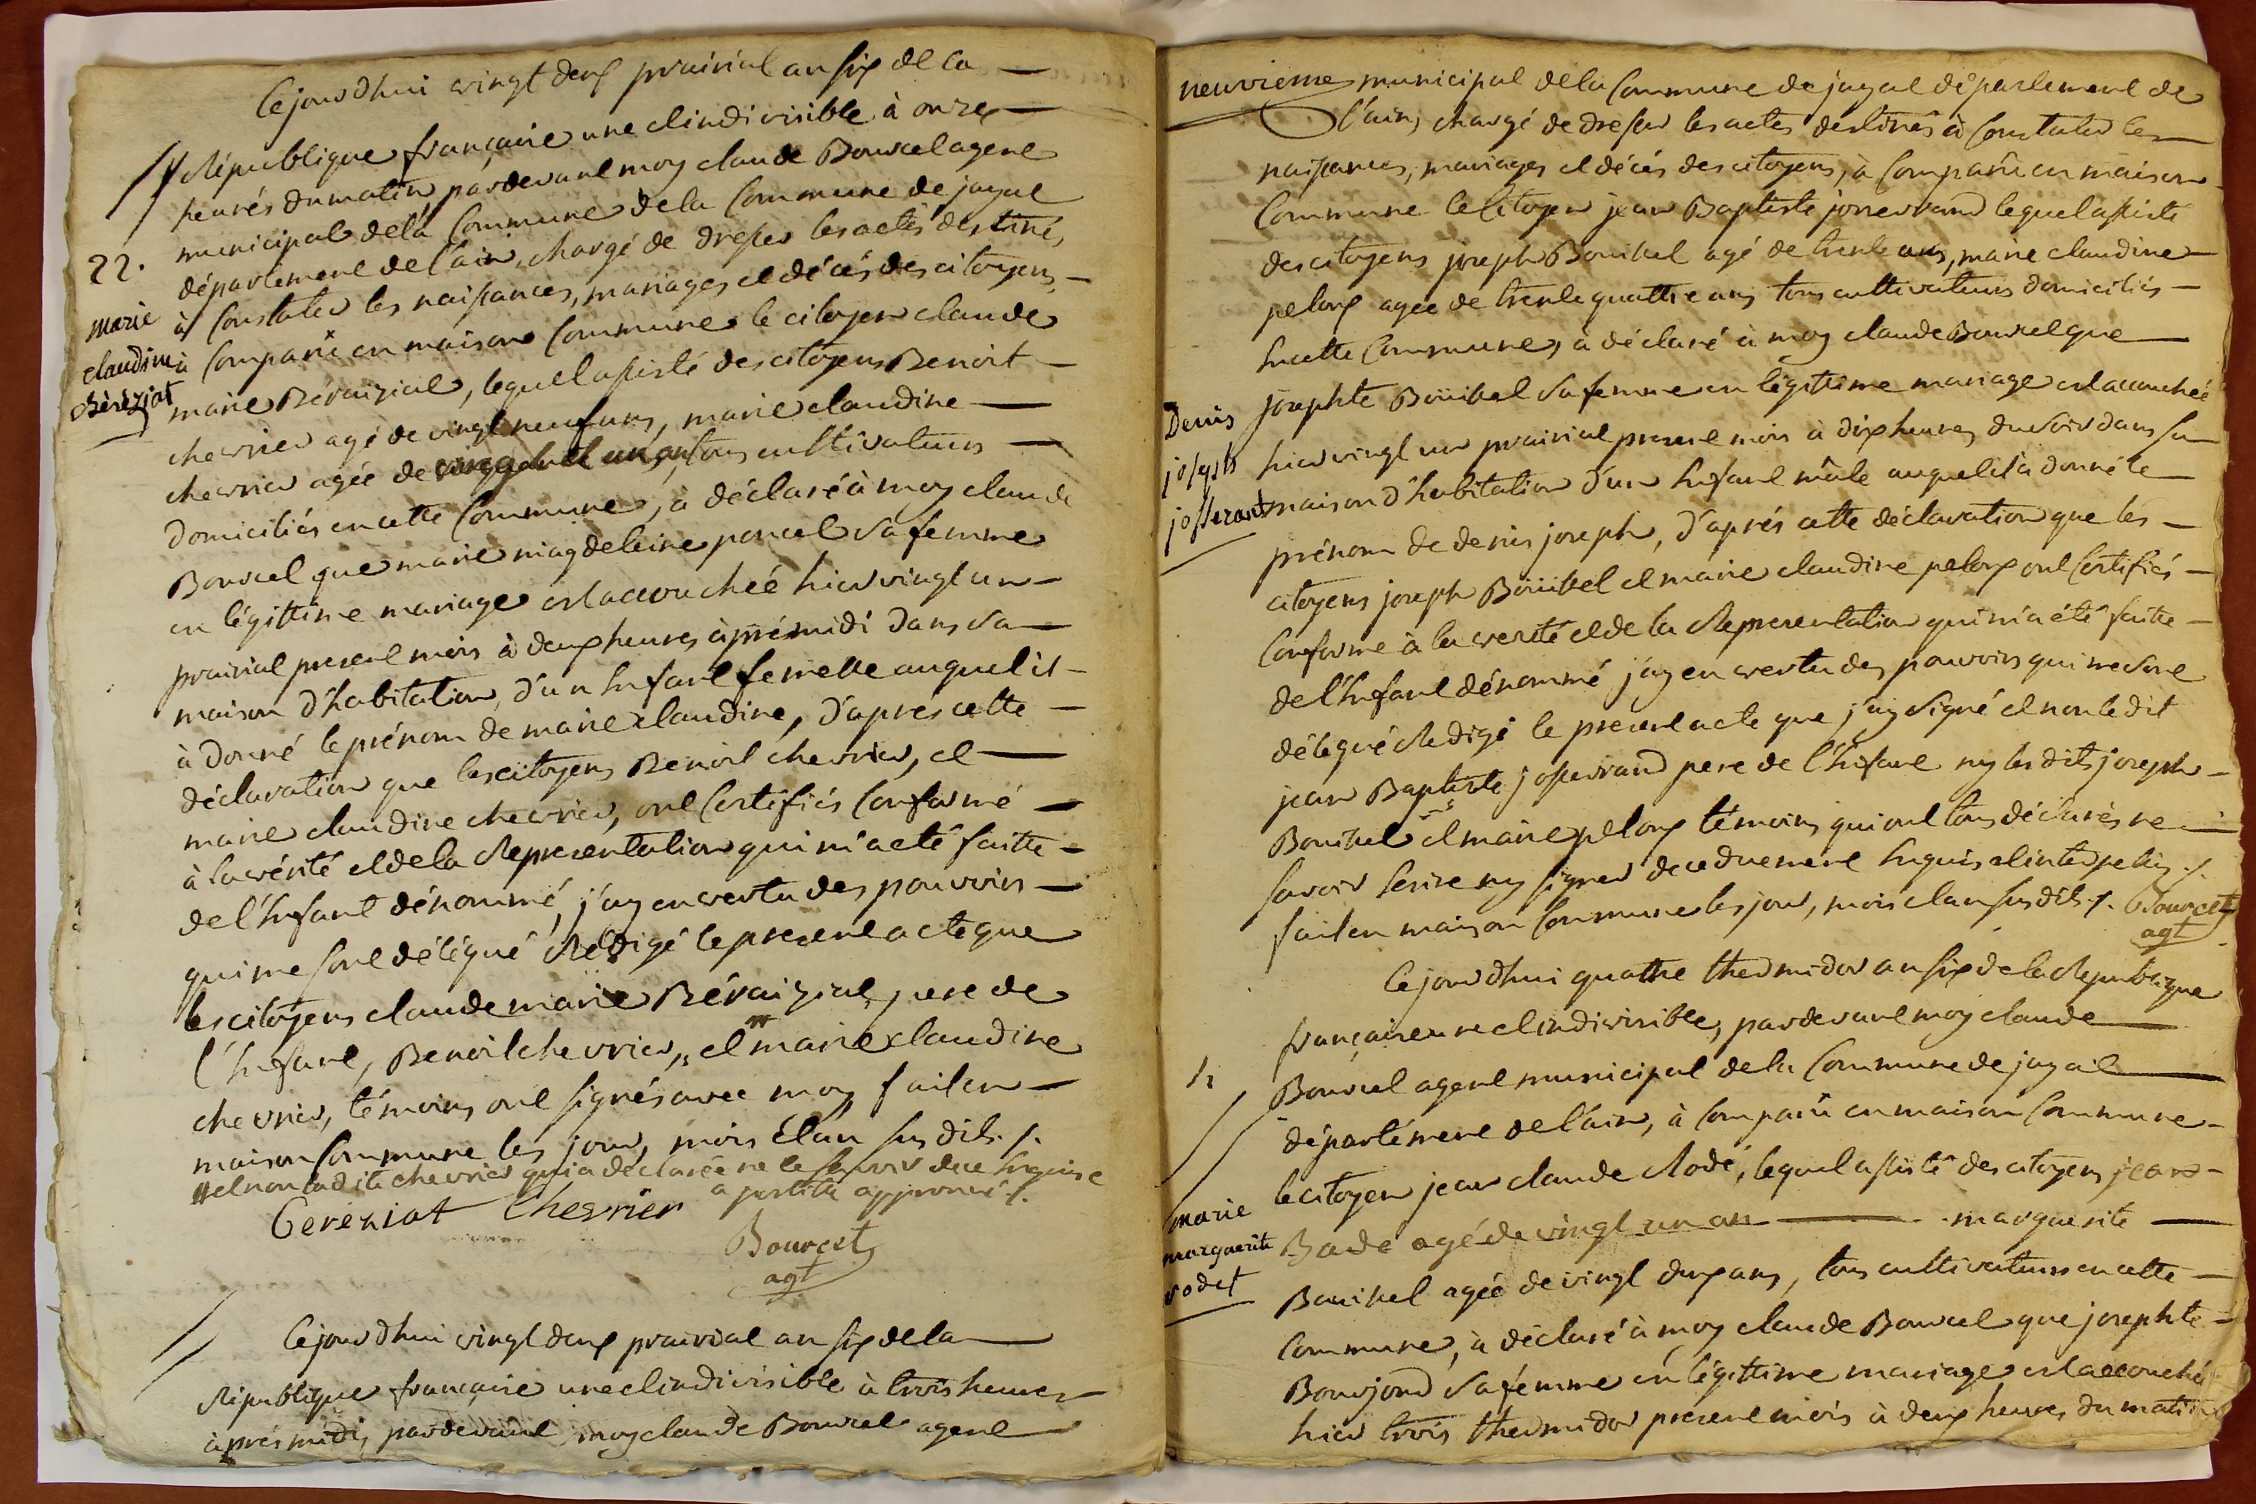 Cejourdhui vingt deux prairial an six de la
République françaire une et indivisible à onze
heures du matin, pardevant moy claude Bourcel agent
municipal dela Commune dela Commune de jayat
22.
département de l'ain, chargé de dresser les actes destinés
à Constater les naissances, mariages et décés des citoyens,
marie
claudine
Béréziat
à Comparû en maison Commune le citoyen claude
marie Béraiziat, lequel assisté des citoyens Benoit
chevrier agé de vingt neuf ans, marie claudine
chevrier agée de ans, tous cultivateurs
domiciliés en cette Commune, à déclaré à moy claude
Bourcel que marie magdeleine poncel sa femme
en légittime mariage est accouchée hier vingt un
prairial present mois à deux heures aprés midi dans sa
maison d'habitation, d'un Enfant femelle auquel il
à donné le prénom de marie claudine, d'apres cette
déclaration que les citoyens Benoit chevrier, et
marie claudine chevrier, ont Certifiés Conforme
à la vérité et de la Representation qui m'a eté faitte
de l'Enfant dénommé, j'ay en vertu des pouvoirs
qui me sont délégué Rédigé le present acte que
les citoyens claude marie Béraiziat, pere de
l'Enfant, Benoit chevrier, et marie claudine
chevrier, témoins ont signés avec moy fait en
maison Commune les jour, mois et an susdits ./.
et non la dite chevrier qui a déclarée ne le savoir de ce Enquise
apostille approuvé ./.
Bereziat Chevrier
Bourcet
agt
Cejourdhui vingt deux prairial an six de la
République françaire une et indivisible à trois heures
aprés midi, pardevant moy claude Bourcel agent
neuvieme municipal dela Commune de jayat département de
l'ain, chargé de dresser les actes destinés à Constater les
naissances, mariages et décés des citoyens, à Comparû en maison
Commune le Citoyen jean Baptiste josserand lequel assisté
des citoyens joseph Bouibel agé de trente ans, marie claudine
peloux agée de trente quattre ans tous cultivateurs domiciliés
En cette Commune, à déclaré à moy claude Bourcel que
Denis
joseph
josserant
josephte Bouibel sa femme en légittime mariage est accouchée
hier vingt un prairial present mois à dix heures du soir dans sa
maison d'habitation d'un Enfant mâle auquel il a donné le
prénom de denis joseph, d'aprés cette déclaration que les
citoyens joseph Bouibel et marie claudine peloux ont Certifiés
Conforme à la verité et de la Representation qui m'a été faitte
de l'Enfant dénommé j'ay en vertu des pouvoirs qui me sont
délégué Redigé le present acte que j'ay signé et non le dit
jean Baptiste josserand pere de l'Enfant ny les dits joseph
Bouibel et marie peloux témoins qui ont tous déclarés ne
savoir Ecrire ny signer de ce duement Enquis et interpellés ./.
fait en maison Commune les jour, mois et an susdits ./. Bourcet
agt
Cejourdhui quattre thermidor an six de la Republique
françaire une et indivisible, pardevant moy claude
Bourcel agent municipal de la Commune de jayat
département de l'ain, à Comparû en maison Commune
le citoyen jean claude Rodé, lequel assisté des citoyens jean
marie
marguerite
rodet
Badé agé de vingt un an marguerite
Bouibel agée de vingt deux ans, tous cultivateurs en cette
Commune, à déclaré à moy claude Bourcel que josephte
Boujond sa femme en légittime mariage est accouchée
hier trois thermidor present mois à deux heures du matin